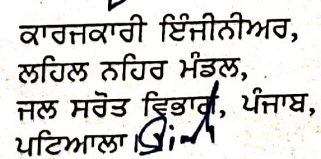 ਕਾਰਜਕਾਰੀ ਇੰਜੀਨੀਅਰ,
ਲਹਿਲ ਨਹਿਰ ਮੰਡਲ,
ਜਲ ਸਰੋਤ ਵਿਭਾਗ, ਪੰਜਾਬ,
ਪਟਿਆਲਾ।